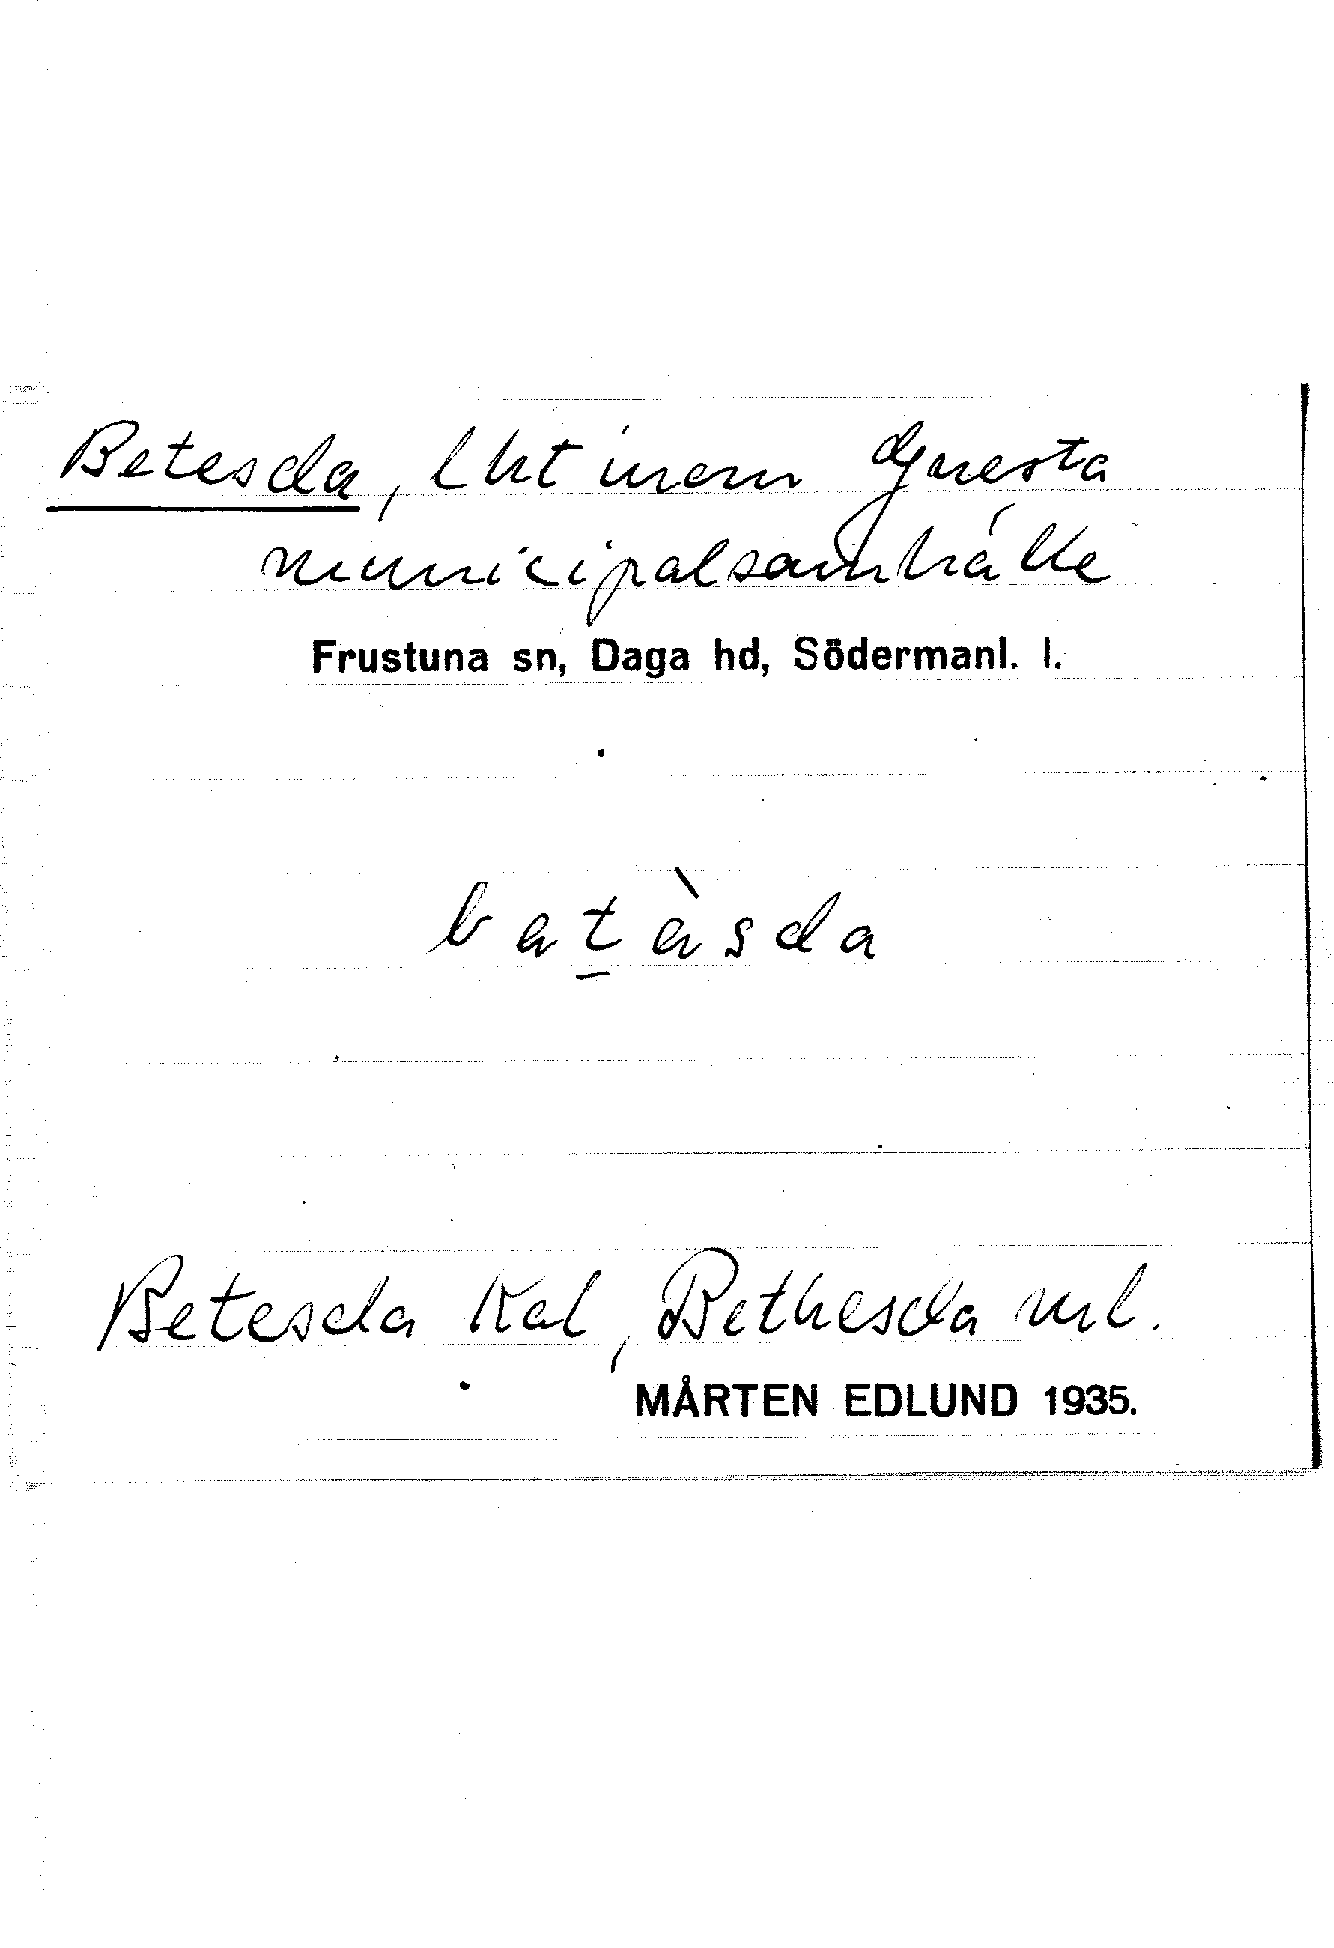 Betesda, lht inom Gnesta
municipalsamhälle
Frustuna sn, Daga hd, Södermanl. l.
batàsda
Betesda Kal, Bethesda ml.
MÅRTEN EDLUND 1935.